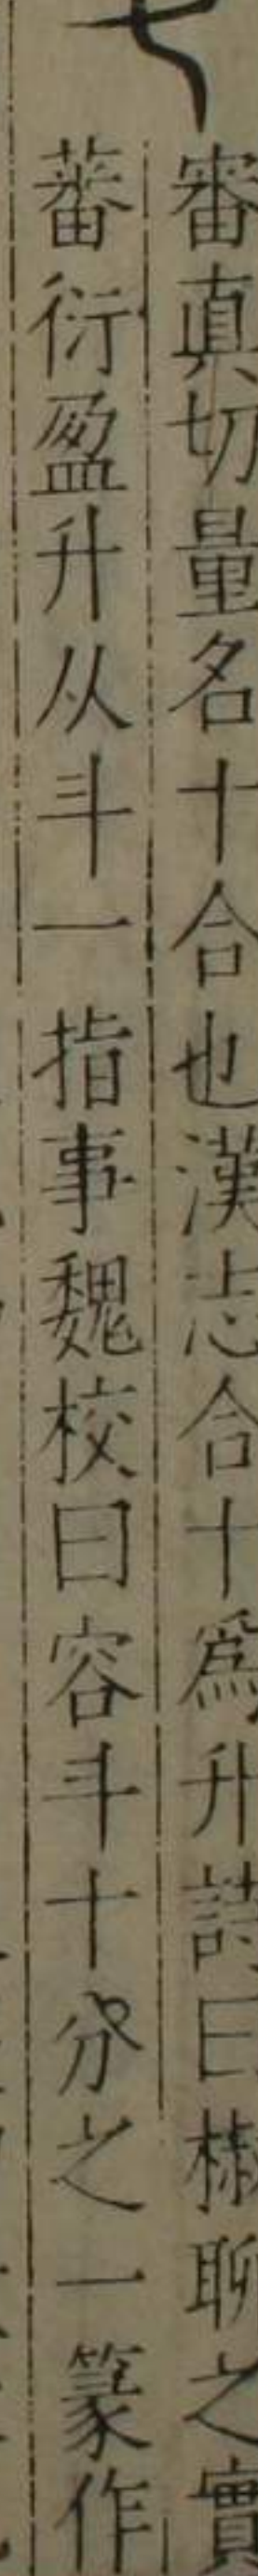 審真切量名十合也漢志合十爲升詩曰椒聊之實
蕃衍盈升从斗一指事魏校曰容斗十分之一篆作